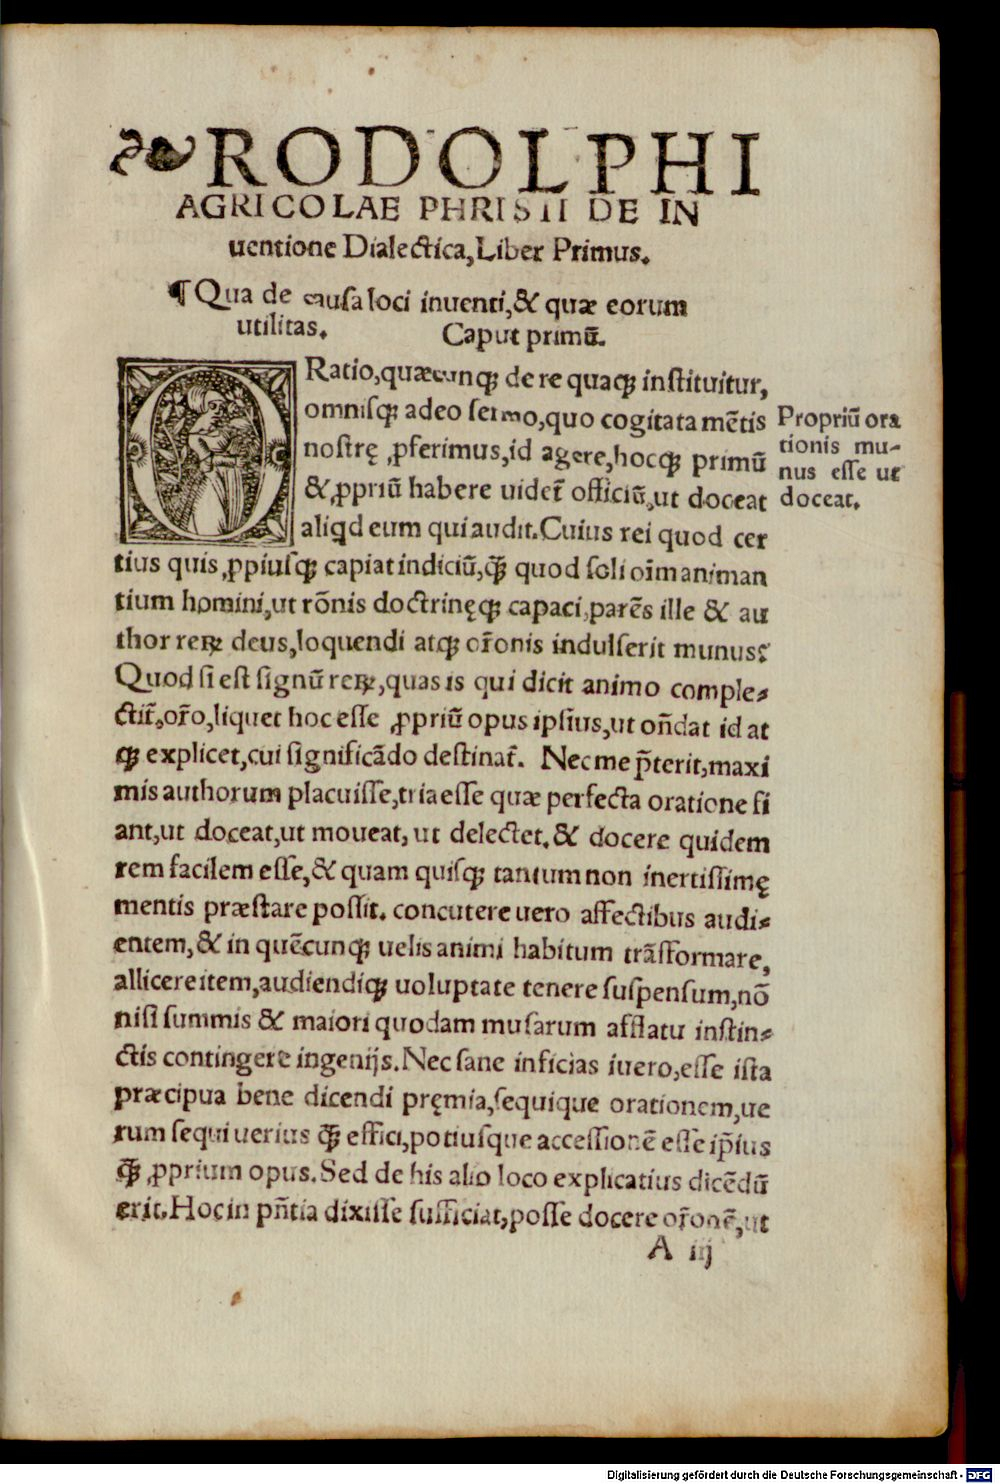 ❧ RODOLPHI
AGRICOLAE PHRISII DE IN
uentione Dialectica, Liber Primus.
¶ Qua de causa loci inuenti, & quæ eorum
utilitas. Caput primū.
ORatio, quæcunqꝫ de re quaqꝫ instituitur,
omnisqꝫ adeo sermo, quo cogitata mētis
nostrę ꝓferimus, id agere, hocqꝫ primū
&, ꝓpriū habere uidet̄ officiū, ut doceat
aliqd eum qui audit. Cuius rei quod cer
tius quis, ꝓpiusqꝫ capiat indiciū, q̄ꝫ quod soli oīm animan
tium homini, ut rōnis doctrinęqꝫ capaci, parēs ille & au
thor reꝝ deus, loquendi atqꝫ or̄onis indulserit munus?
Quod si est signū reꝝ, quas is qui dicit animo comple⸗
ctit̄, or̄o, liquet hoc esse ꝓpriū opus ipsius, ut on̄dat id at
qꝫ explicet, cui significādo destinat̄. Nec me p̄terit, maxi
mis authorum placuisse, tria esse quæ perfecta oratione fi
ant, ut doceat, ut moueat, ut delectet. & docere quidem
rem facilem esse, & quam quisqꝫ tantum non inertissimę
mentis præstare possit. concutere uero affectibus audi⸗
entem, & in quēcunqꝫ uelis animi habitum trāsformare,
allicere item, audiendiqꝫ uoluptate tenere suspensum, nō
nisi summis & maiori quodam musarum afflatu instin⸗
ctis contingere ingenijs. Nec sane inficias iuero, esse ista
præcipua bene dicendi pręmia, sequique orationem, ue
rum sequi uerius q̄ꝫ effici, potiusque accessionē esse ip̄ius
q̄ꝫ ꝓprium opus. Sed de his alio loco explicatius dicēdū
erit. Hoc in pn̄tia dixisse sufficiat, posse docere or̄onē, ut
A iij
Propriū ora
tionis mu-
nus esse ut
doceat.
Digitalisierung gefördert durch die Deutsche Forschungsgemeinschaft - DFG